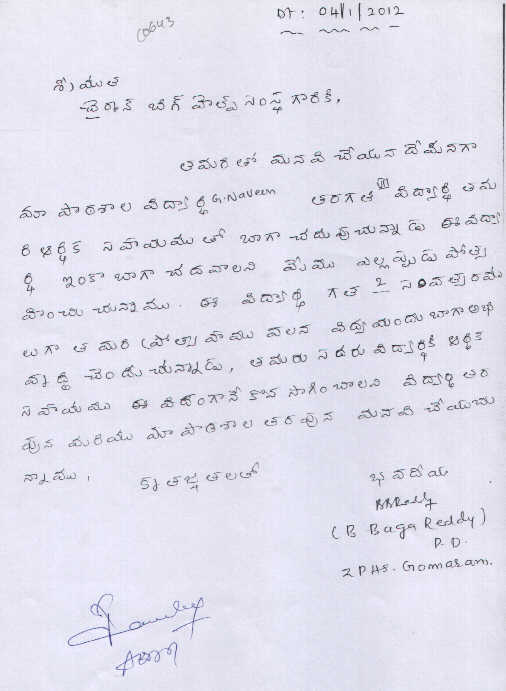 00643
Dt: 04/1/2012
శ్రీయుత
చైర్మన్ బిగ్ హెల్ప్ సంస్థ గారికి,
తమరితో మనవి చేయున దేమనగా
మా పాఠశాల విద్యార్థి G. Naveen తరగతి VII విద్యార్థి తమ
రి ఆర్థిక సహాయము తో బాగా చదువుచున్నాడు ఈ విద్యా
ర్థి ఇంకా బాగా చదవాలని మేము ఎల్లప్పుడు ప్రోత్స
హించుచున్నాము. ఈ విద్యార్థి గత 2 సంవత్సరము
లుగా తమరి ప్రోత్సాహము వలన విద్యయందు బాగా అభి
వృద్ధి చెందుచున్నాడు, తమరు సదరు విద్యార్థికి ఆర్థిక
సహాయము ఈ విదంగానే కొన సాగించాలని విద్యార్థి తర
పున మరియు మా పాఠశాల తరపున మనవి చేయుచు
న్నాము,
కృతజ్ఞతలతో
భవదీయ
(B Baga Reddy)
P.D.
ZPHS. Gomaram.